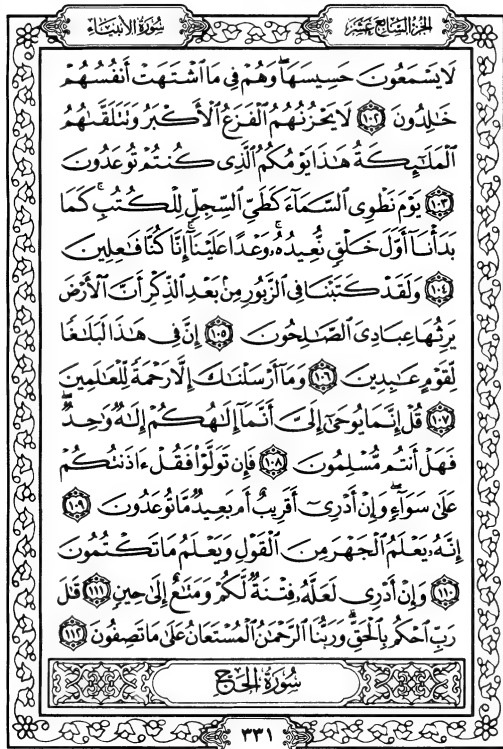 الجُزْءُ السَّابِعَ عَشَرَ
سُورَةُ الأَنبِيَاءِ
لَا يَسْمَعُونَ حَسِيسَهَا ۖ وَهُمْ فِي مَا ٱشْتَهَتْ أَنفُسُهُمْ
خَٰلِدُونَ ١٠٢ لَا يَحْزُنُهُمُ ٱلْفَزَعُ ٱلْأَكْبَرُ وَتَتَلَقَّىٰهُمُ
ٱلْمَلَٰٓئِكَةُ هَٰذَا يَوْمُكُمُ ٱلَّذِي كُنتُمْ تُوعَدُونَ
١٠٣ يَوْمَ نَطْوِي ٱلسَّمَآءَ كَطَيِّ ٱلسِّجِلِّ لِلْكُتُبِ ۚ كَمَا
بَدَأْنَآ أَوَّلَ خَلْقٍ نُّعِيدُهُۥ ۚ وَعْدًا عَلَيْنَآ ۚ إِنَّا كُنَّا فَٰعِلِينَ
١٠٤ وَلَقَدْ كَتَبْنَا فِي ٱلزَّبُورِ مِنۢ بَعْدِ ٱلذِّكْرِ أَنَّ ٱلْأَرْضَ
يَرِثُهَا عِبَادِيَ ٱلصَّٰلِحُونَ ١٠٥ إِنَّ فِي هَٰذَا لَبَلَٰغًا
لِّقَوْمٍ عَٰبِدِينَ ١٠٦ وَمَآ أَرْسَلْنَٰكَ إِلَّا رَحْمَةً لِّلْعَٰلَمِينَ
١٠٧ قُلْ إِنَّمَا يُوحَىٰٓ إِلَيَّ أَنَّمَآ إِلَٰهُكُمْ إِلَٰهٌ وَٰحِدٌ ۖ
فَهَلْ أَنتُم مُّسْلِمُونَ ١٠٨ فَإِن تَوَلَّوْا۟ فَقُلْ ءَاذَنتُكُمْ
عَلَىٰ سَوَآءٍ ۖ وَإِنْ أَدْرِيٓ أَقَرِيبٌ أَم بَعِيدٌ مَّا تُوعَدُونَ ١٠٩
إِنَّهُۥ يَعْلَمُ ٱلْجَهْرَ مِنَ ٱلْقَوْلِ وَيَعْلَمُ مَا تَكْتُمُونَ
١١٠ وَإِنْ أَدْرِي لَعَلَّهُۥ فِتْنَةٌ لَّكُمْ وَمَتَٰعٌ إِلَىٰ حِينٍ ١١١ قَٰلَ
رَبِّ ٱحْكُم بِٱلْحَقِّ ۗ وَرَبُّنَا ٱلرَّحْمَٰنُ ٱلْمُسْتَعَانُ عَلَىٰ مَا تَصِفُونَ ١١٢
سُورَةُ الحَجِّ
٣٣١